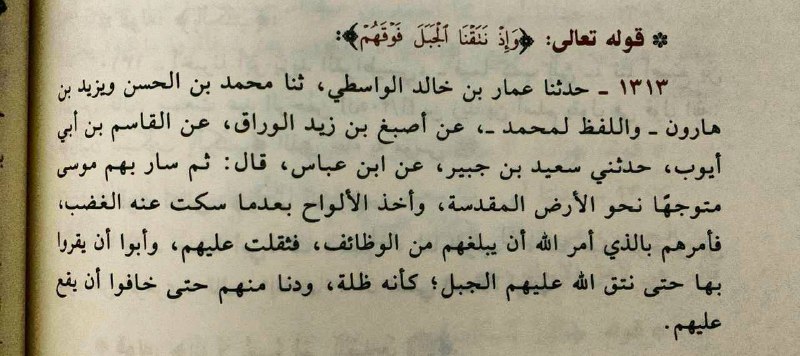 * قوله تعالى: ﴿وَإِذْ نَتَقْنَا الْجَبَلَ فَوْقَهُمْ﴾:
١٣١٣ ـ حدثنا عمار بن خالد الواسطي، ثنا محمد بن الحسن ويزيد بن
هارون ـ واللفظ لمحمد ـ، عن أصبغ بن زيد الوراق، عن القاسم بن أبي
أيوب، حدثني سعيد بن جبير، عن ابن عباس، قال: ثم سار بهم موسى
متوجهًا نحو الأرض المقدسة، وأخذ الألواح بعدما سكت عنه الغضب،
فأمرهم بالذي أمر الله أن يبلغهم من الوظائف، فثقلت عليهم، وأبوا أن يقروا
بها حتى نتق الله عليهم الجبل؛ كأنه ظلة، ودنا منهم حتى خافوا أن يقع
عليهم.